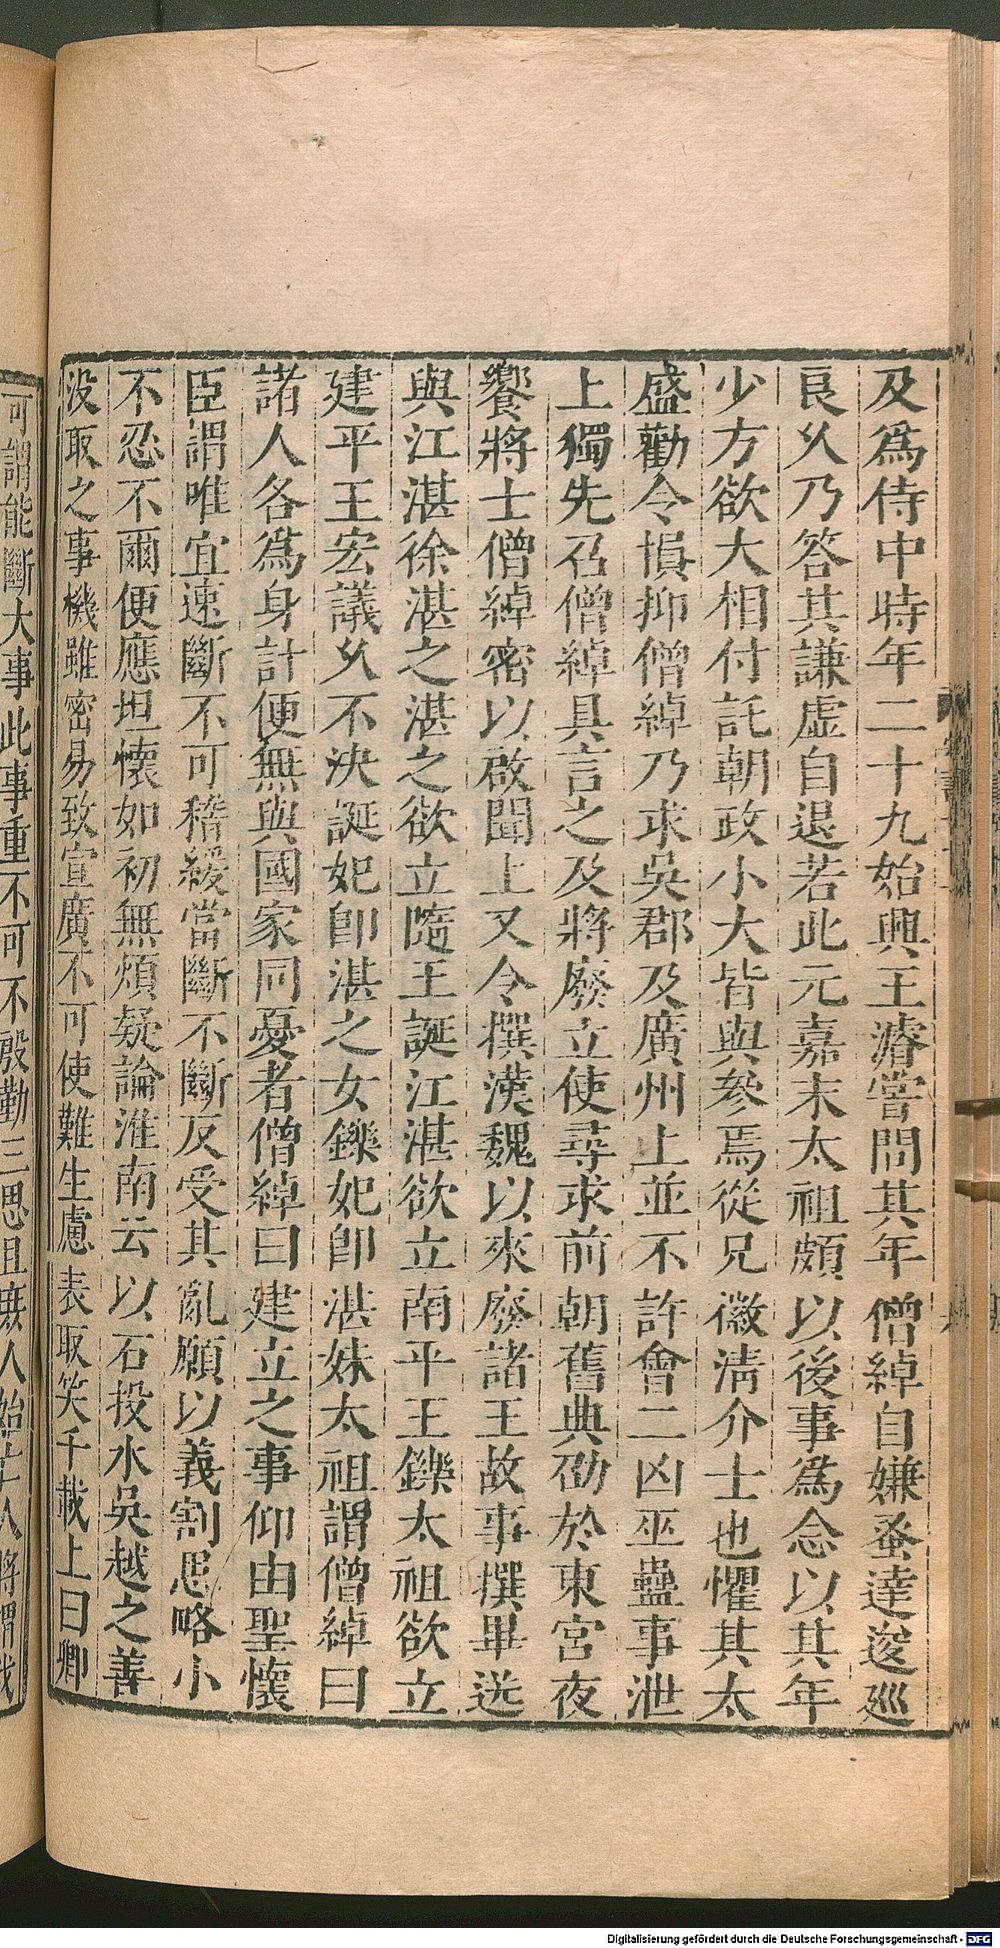 及爲侍中時年二十九始興王濬嘗問其年僧綽自嫌蚤達逡巡
良乆乃答其謙虛自退若此元嘉末太祖頗以後事爲念以其年
少方欲大相付託朝政小大皆與參焉從兄徽淸介士也懼其太
盛勸令損抑僧綽乃求吳郡及廣州上並不許會二凶巫蠱事泄
上獨先召僧綽具言之及將廢立使尋求前朝舊典劭於東宮夜
饗將士僧綽密以啟聞上又令撰漢魏以來廢諸王故事撰畢送
與江湛徐湛之湛之欲立隨王誕江湛欲立南平王鑠太祖欲立
建平王宏議乆不決誕妃卽湛之女鑠妃卽湛妹太祖謂僧綽曰
諸人各爲身計便無與國家同憂者僧綽曰建立之事仰由聖懷
臣謂唯宜速斷不可稽緩當斷不斷反受其亂願以義割恩略小
不忍不爾便應坦懷如初無煩疑論淮南云以石投水吳越之善
没取之事機雖密易致宣廣不可使難生慮表取笑千載上曰卿
可謂能斷大事此事重不可不殷勤三思且庶人始亡人將謂我
Digitalisierung gefördert durch die Deutsche Forschungsgemeinschaft - DFG